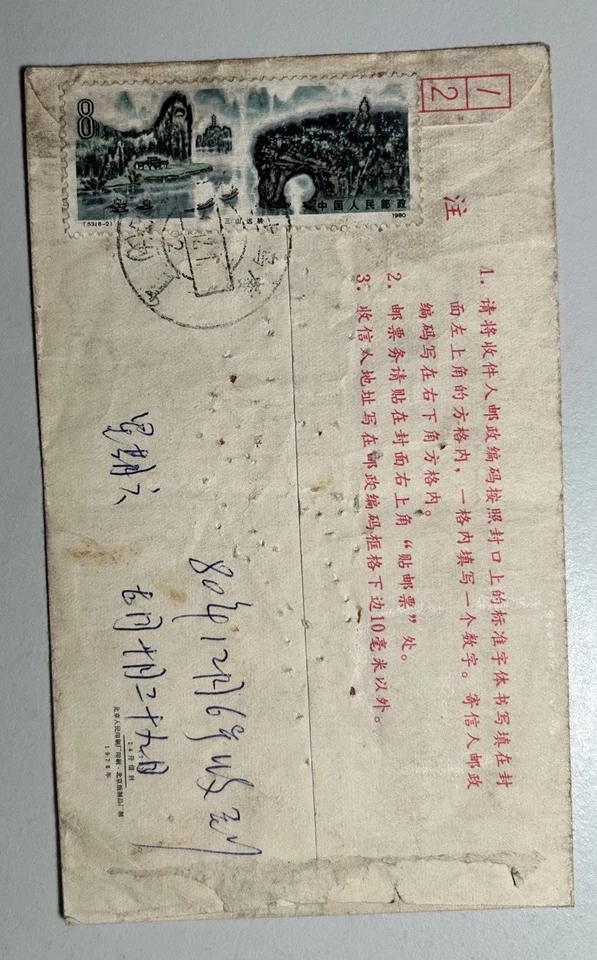 8
中国人民邮政
(53(8-2)
三山远眺
1980
1
2
注
1. 请将收件人邮政编码按照封口上的标准字体书写填在封
面左上角的方格内，一格内填写一个数字。寄信人邮政
编码写在右下角方格内。
2. 邮票务请贴在封面右上角“贴邮票”处。
3. 收信人地址写在邮政编码框格下边10毫米以外。
80年12月6号收到
十月二十九日
24开信封
北京人民印刷厂印刷·北京纸制品厂制
1978年